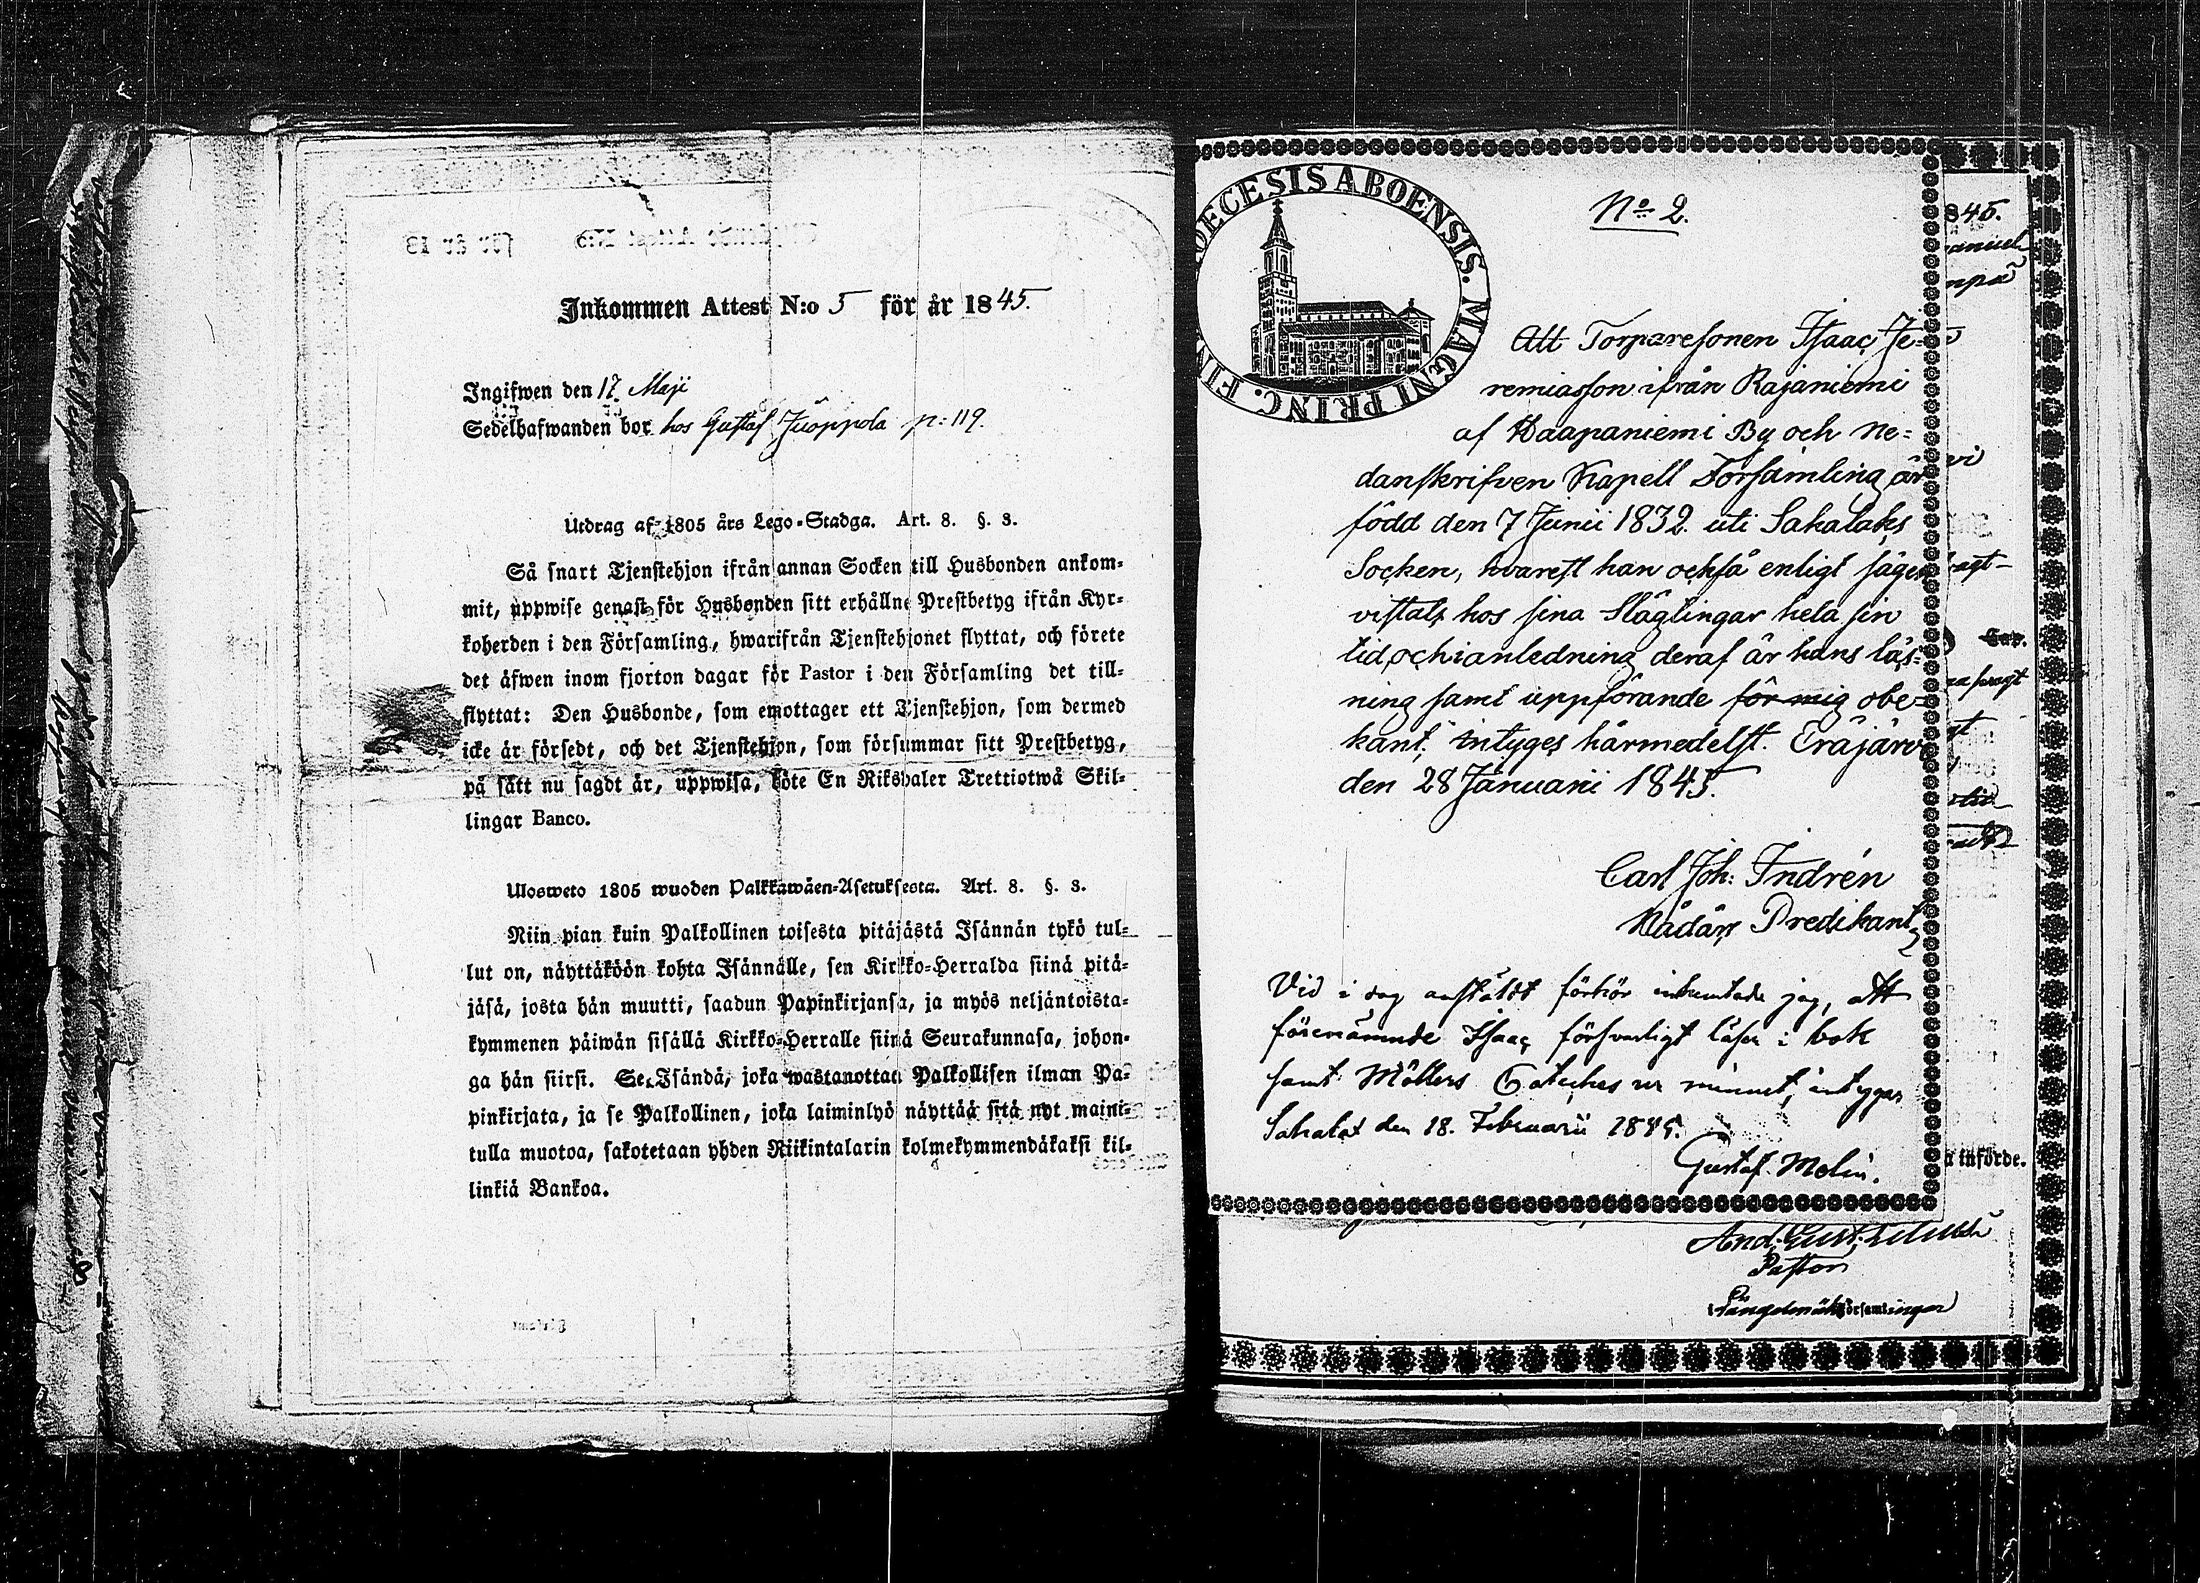 Inkommen Attest N:o 5 för år 1845.
Ingifwen den 17. Maji
Sedelhafwanden bor hos Gustaf Juoppola p: 119.
Utdrag af 1805 års Lego-Stadga. Art. 8. §. 3.
Så snart Tjenstehjon ifrån annan Socken till Husbonden ankom-
mit, uppwise genast för Husbonden sitt erhållne Prestbetyg ifrån Kyr-
koherden i den Församling, hwarifrån Tjenstehjonet flyttat, och förete
det äfwen inom fjorton dagar för Pastor i den Församling det till-
flyttat: Den Husbonde, som emottager ett Tjenstehjon, som dermed
icke är försedt, och det Tjenstehjon, som försummar sitt Prestbetyg,
på sätt nu sagdt är, uppwisa, böte En Riksdaler Trettiotwå Skil-
lingar Banco.
Ulosweto 1805 wuoden Palkkawäen-Asetuksesta. Art. 8. §. 3.
Niin pian kuin Palkollinen toisesta pitäjästä Isännän tykö tul-
lut on, näyttäköön kohta Isännälle, sen Kirkko-Herralda siinä pitä-
jäsä, josta hän muutti, saadun Papinkirjansa, ja myös neljäntoista-
kymmenen päiwän sisällä Kirkko-Herralle siinä Seurakunnasa, johon-
ga hän siirsi. Se Isändä, joka wastanottaa Palkollisen ilman Pa-
pinkirjata, ja se Palkollinen, joka laiminlyö näyttää sitä nyt maini-
tulla muotoa, sakotetaan yhden Riikintalarin kolmekymmendäkaksi kil-
linkiä Bankoa.
DIOECESIS ABOENSIS. MAGNI PRINC. FIN
No 2.
Att Torparesonen Isaac Je-
remiasson ifrån Rajaniemi
af Haapaniemi By och ne-
danskrifven Kapell Församling är
född den 7 Junii 1832 uti Sahalaks
Socken, hvarest han också enligt sägen
vistats hos sina Slägtingar hela sin
tid, och i anledning deraf är hans läs-
ning samt uppförande för mig obe-
kant; intyges härmedelst. Eräjärvi
den 28 Januarii 1845.
Carl Joh: Indrén
Nådårs Predikant
Vid i dag anstäldt förhör inhemtade jag, att
förenämnde Isaac försvarligt läser i bok
samt Möllers Cateches ur minnet, intygar
Sahalax den 18. Februarii 1845.
Gustaf Molin.
845.
Cap.
införde.
And. Gust.
Pastor
i Längelmäki församlingar